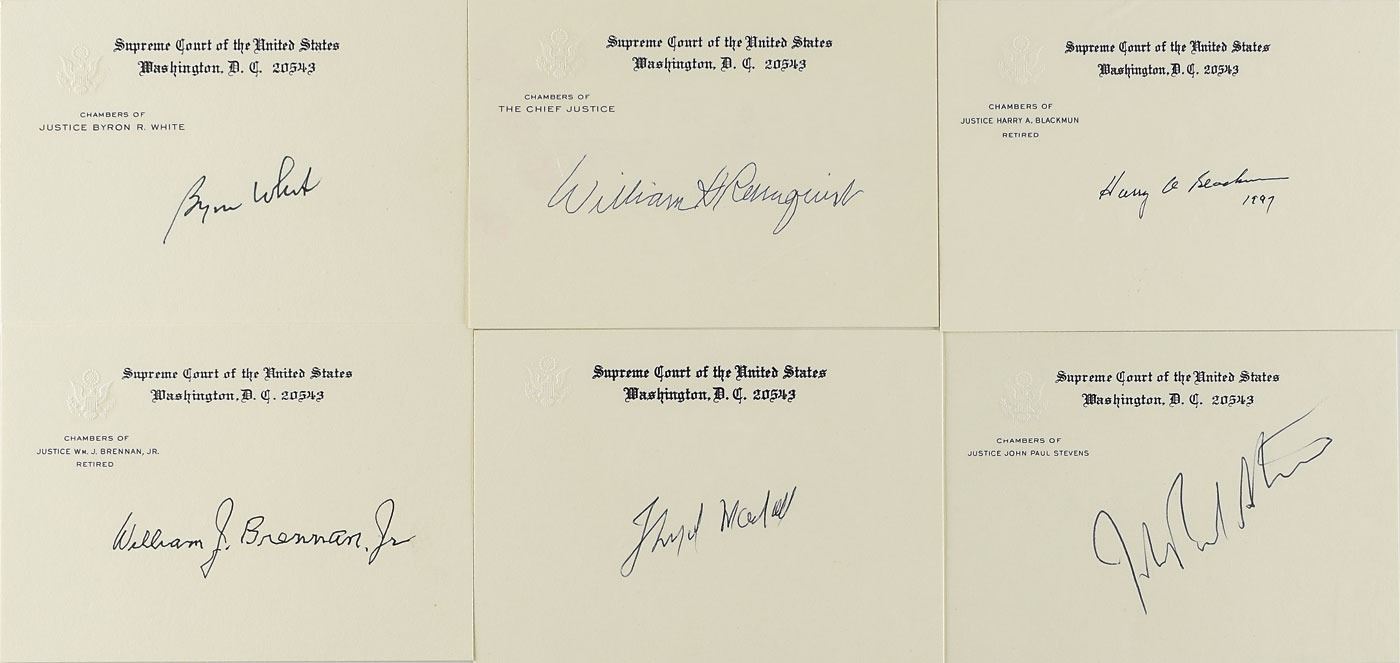 Supreme Court of the United States
Washington, D. C. 20543
CHAMBERS OF
JUSTICE BYRON R. WHITE
Byron White
Supreme Court of the United States
Washington, D. C. 20543
CHAMBERS OF
THE CHIEF JUSTICE
William H Rehnquist
Supreme Court of the United States
Washington, D. C. 20543
CHAMBERS OF
JUSTICE HARRY A. BLACKMUN
RETIRED
Harry A Blackmun
1997
Supreme Court of the United States
Washington, D. C. 20543
CHAMBERS OF
JUSTICE WM. J. BRENNAN, JR.
RETIRED
William J. Brennan, Jr
Supreme Court of the United States
Washington, D. C. 20543
Supreme Court of the United States
Washington, D. C. 20543
CHAMBERS OF
JUSTICE JOHN PAUL STEVENS
John Paul Stevens